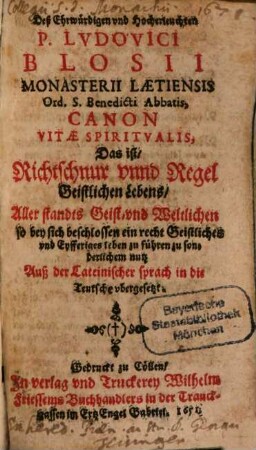 Deß Ehrwürdigen vnd Hocherleuchten
P. LVDOVICI
BLOSII
MONASTERII LÆTIENSIS
Ord. S. Benedicti Abbatis,
CANON
VITÆ SPIRITVALIS,
Das ist/
Richtschnur vnnd Regel
Geistlichen Lebens/
Aller standts Geist. vnd Weltlichen
so bey sich beschlossen ein recht Geistliches
vnd Eyfferiges leben zu führen zu son-
derlichem nutz
Auß der Lateinischer sprach in die
Teutsche vbergesetzt.
Bayerische
Staatsbibliothek
München
Gedruckt zu Cöllen/
In verlag vnd Truckerey Wilhelm
Friessems Buchhandlers in der Tranck-
gassen im Ertz Engel Gabriel.